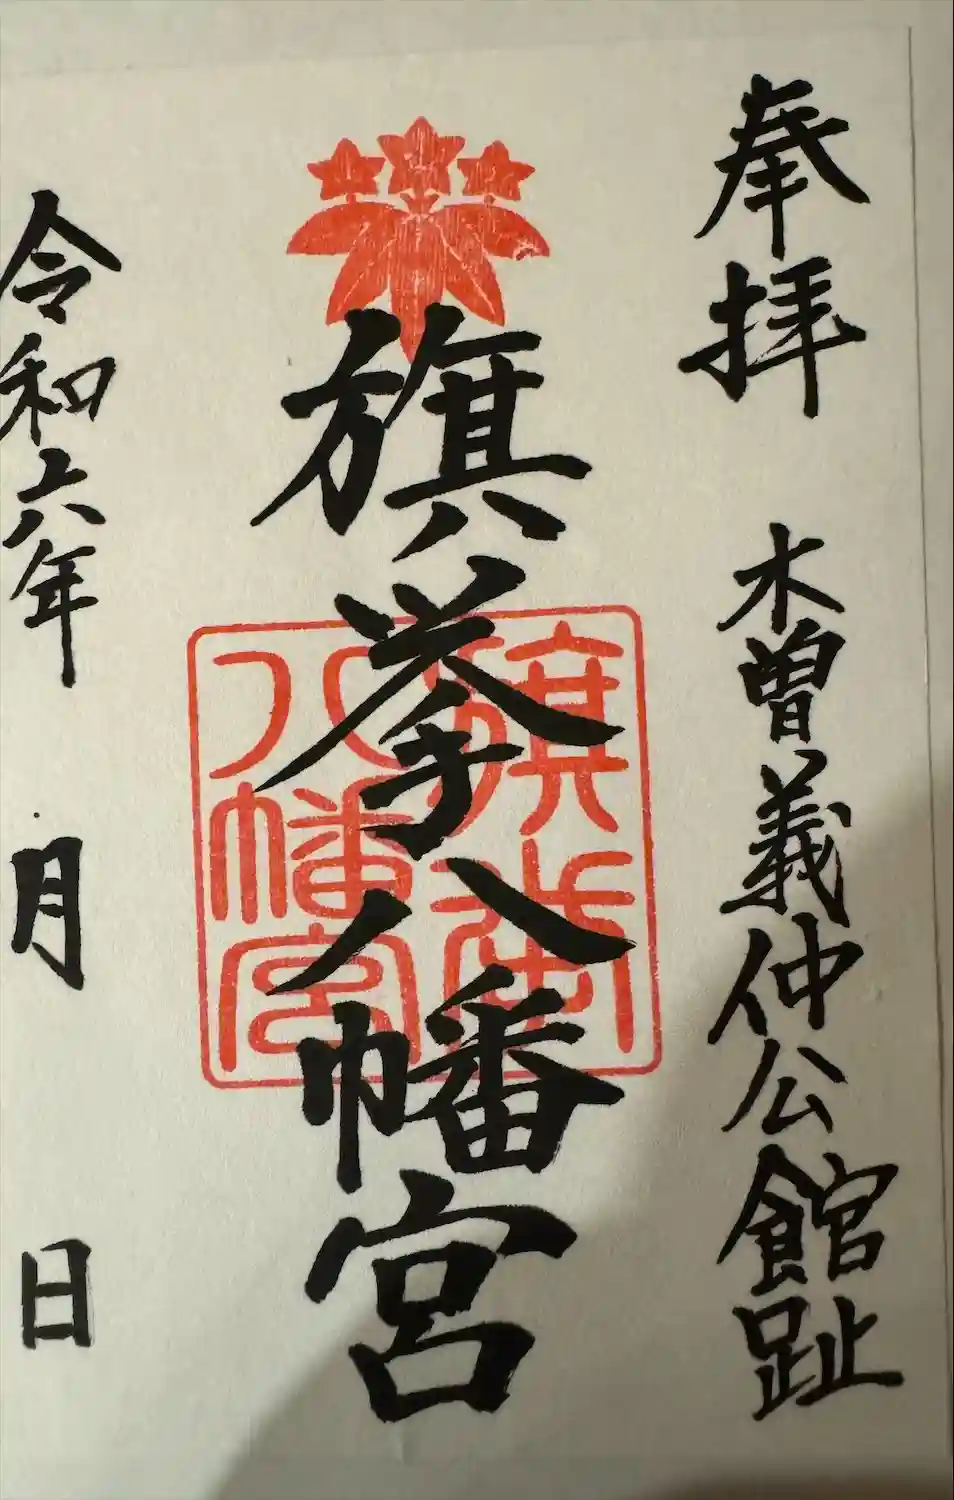 奉拝 木曽義仲公館趾
旗挙八幡宮
旗挙
八幡宮
令和六年 月 日